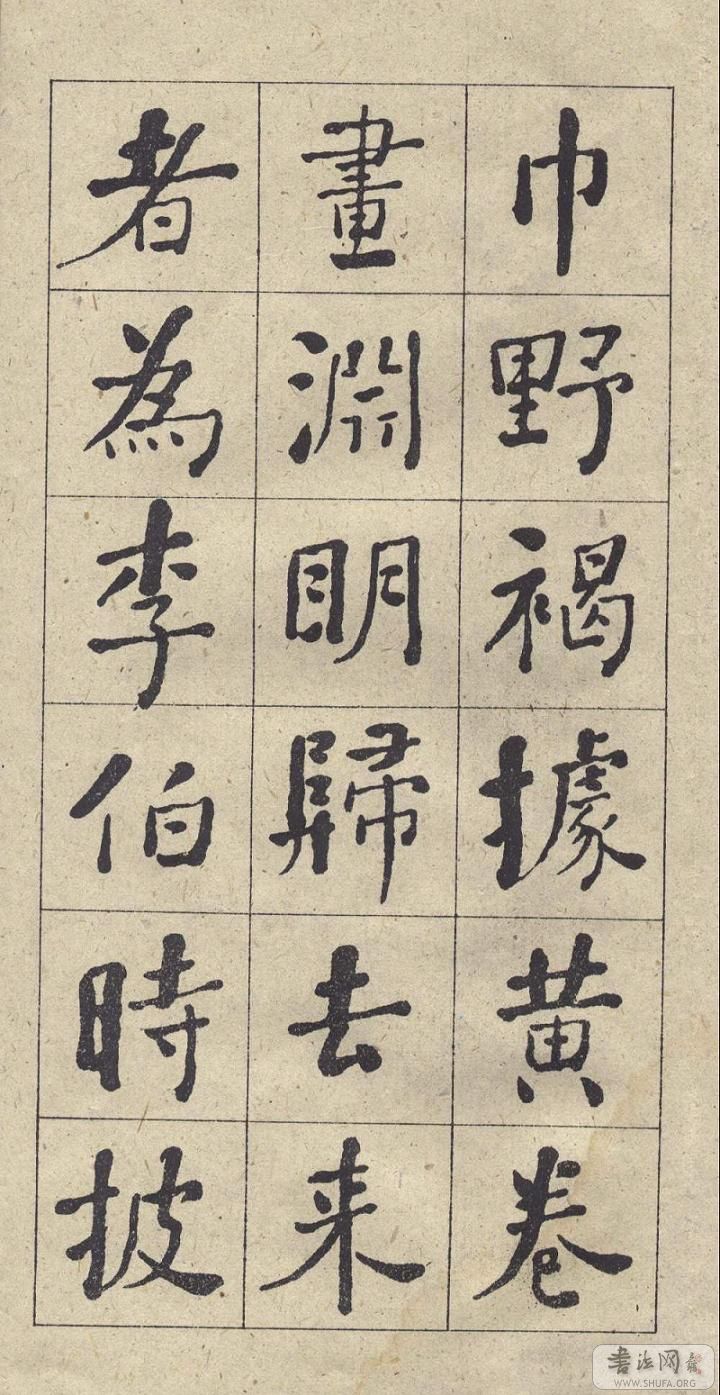 巾野褐據黃卷
畫淵明歸去来
者為李伯時披
書法网
WWW.SHUFA.ORG